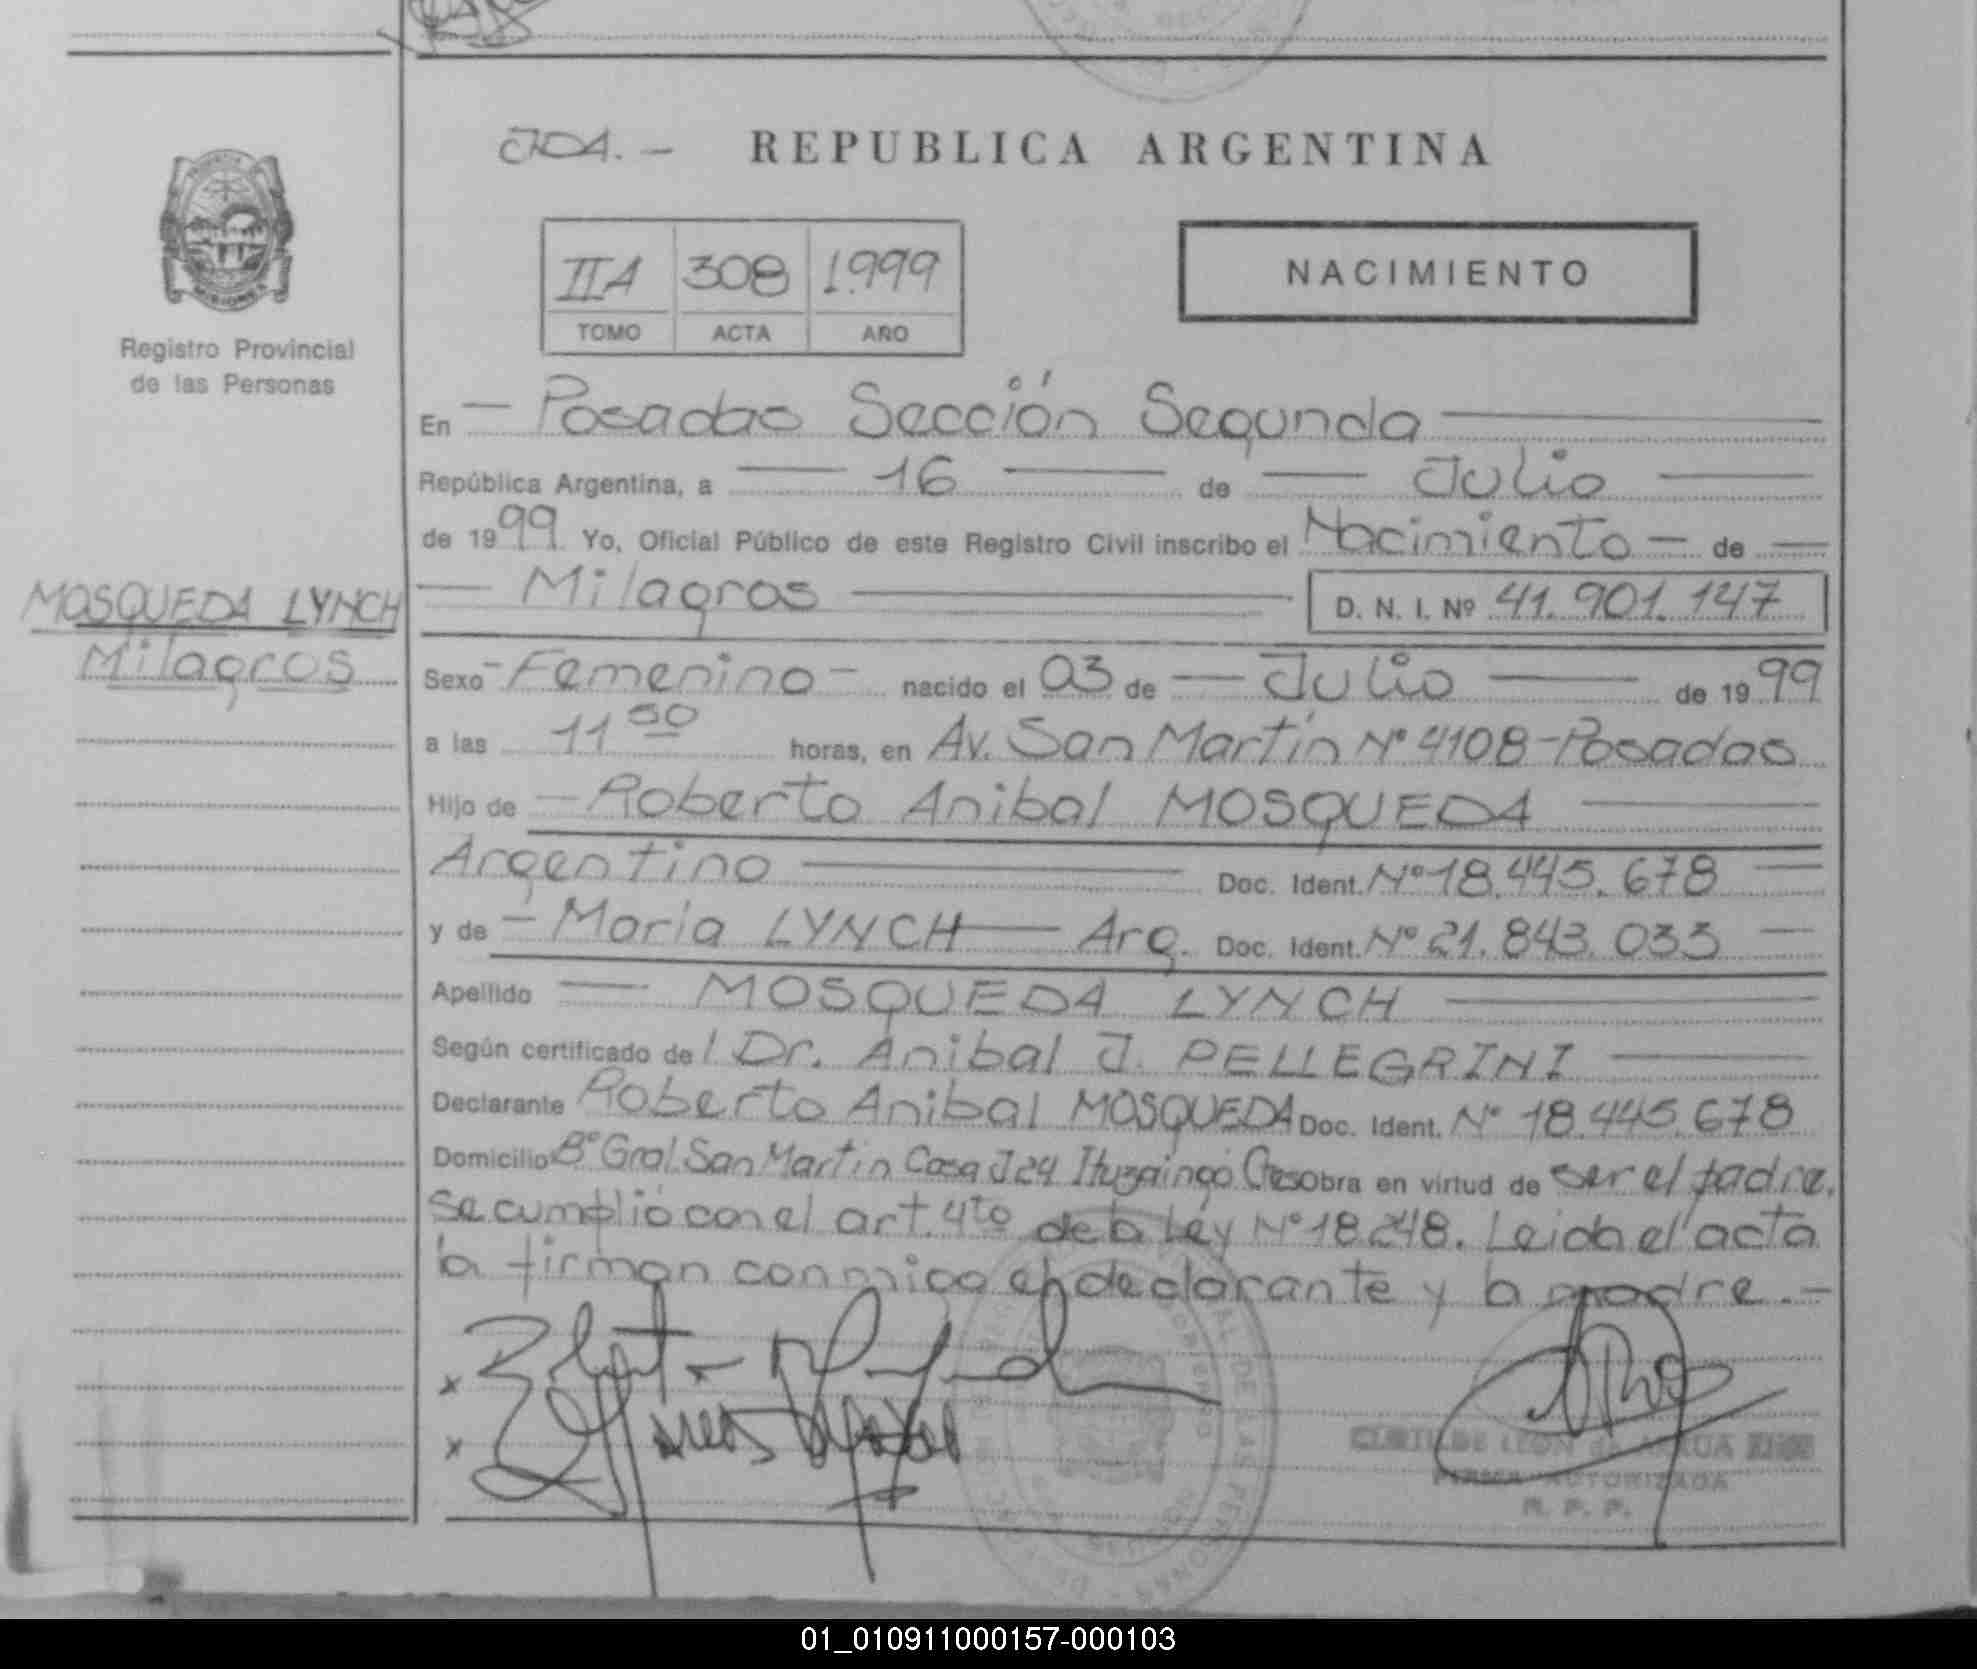 JDA. - REPUBLICA ARGENTINA
IIA 308 1.999
TOMO ACTA AÑO
NACIMIENTO
MISIONES
Registro Provincial
de las Personas
En — Posadas Sección Segunda
República Argentina, a — 16 — de — Julio —
de 1999 Yo, Oficial Público de este Registro Civil inscribo el Nacimiento — de —
— Milagros — D. N. I. Nº 41.901.147
MOSQUEDA LYNCH
Milagros
Sexo - Femenino - nacido el 03 de — Julio — de 1999
a las 11 50 horas, en Av. San Martín Nº 4108-Posadas
Hijo de — Roberto Anibal MOSQUEDA —
Argentino — Doc. Ident. Nº 18.445.678 —
y de — Maria LYNCH — Arg. Doc. Ident. Nº 21.843.033 —
Apellido — MOSQUEDA LYNCH —
Según certificado del Dr. Anibal J. PELLEGRINI —
Declarante Roberto Anibal MOSQUEDA Doc. Ident. Nº 18.445.678
Domicilio Bº Gral. San Martin Casa J24 Ituzaingó Ctes obra en virtud de ser el padre.
Se cumplió con el art. 4to de la Ley Nº 18.248. Leida el acta
la firman conmigo el declarante y la madre. —
x
x
FIRMA AUTORIZADA
R. P. P.
01_010911000157-000103